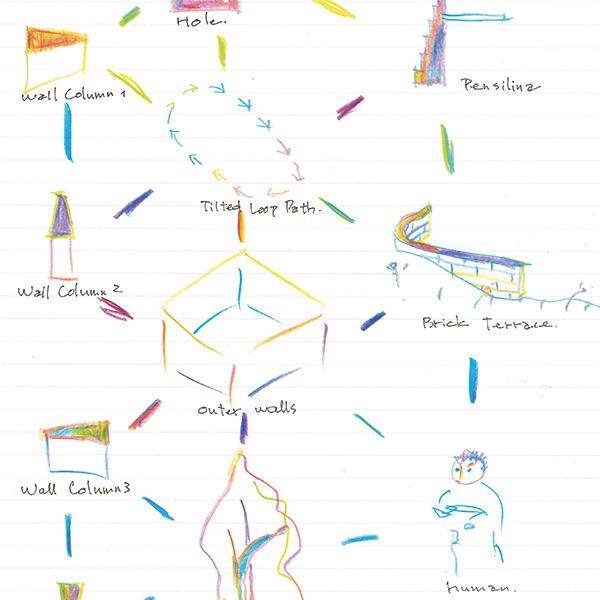 Hole.
Wall Column 1
Pensilina
Tilted Loop Path.
Wall Column 2
Brick Terrace.
outer walls
Wall Column3
Human.